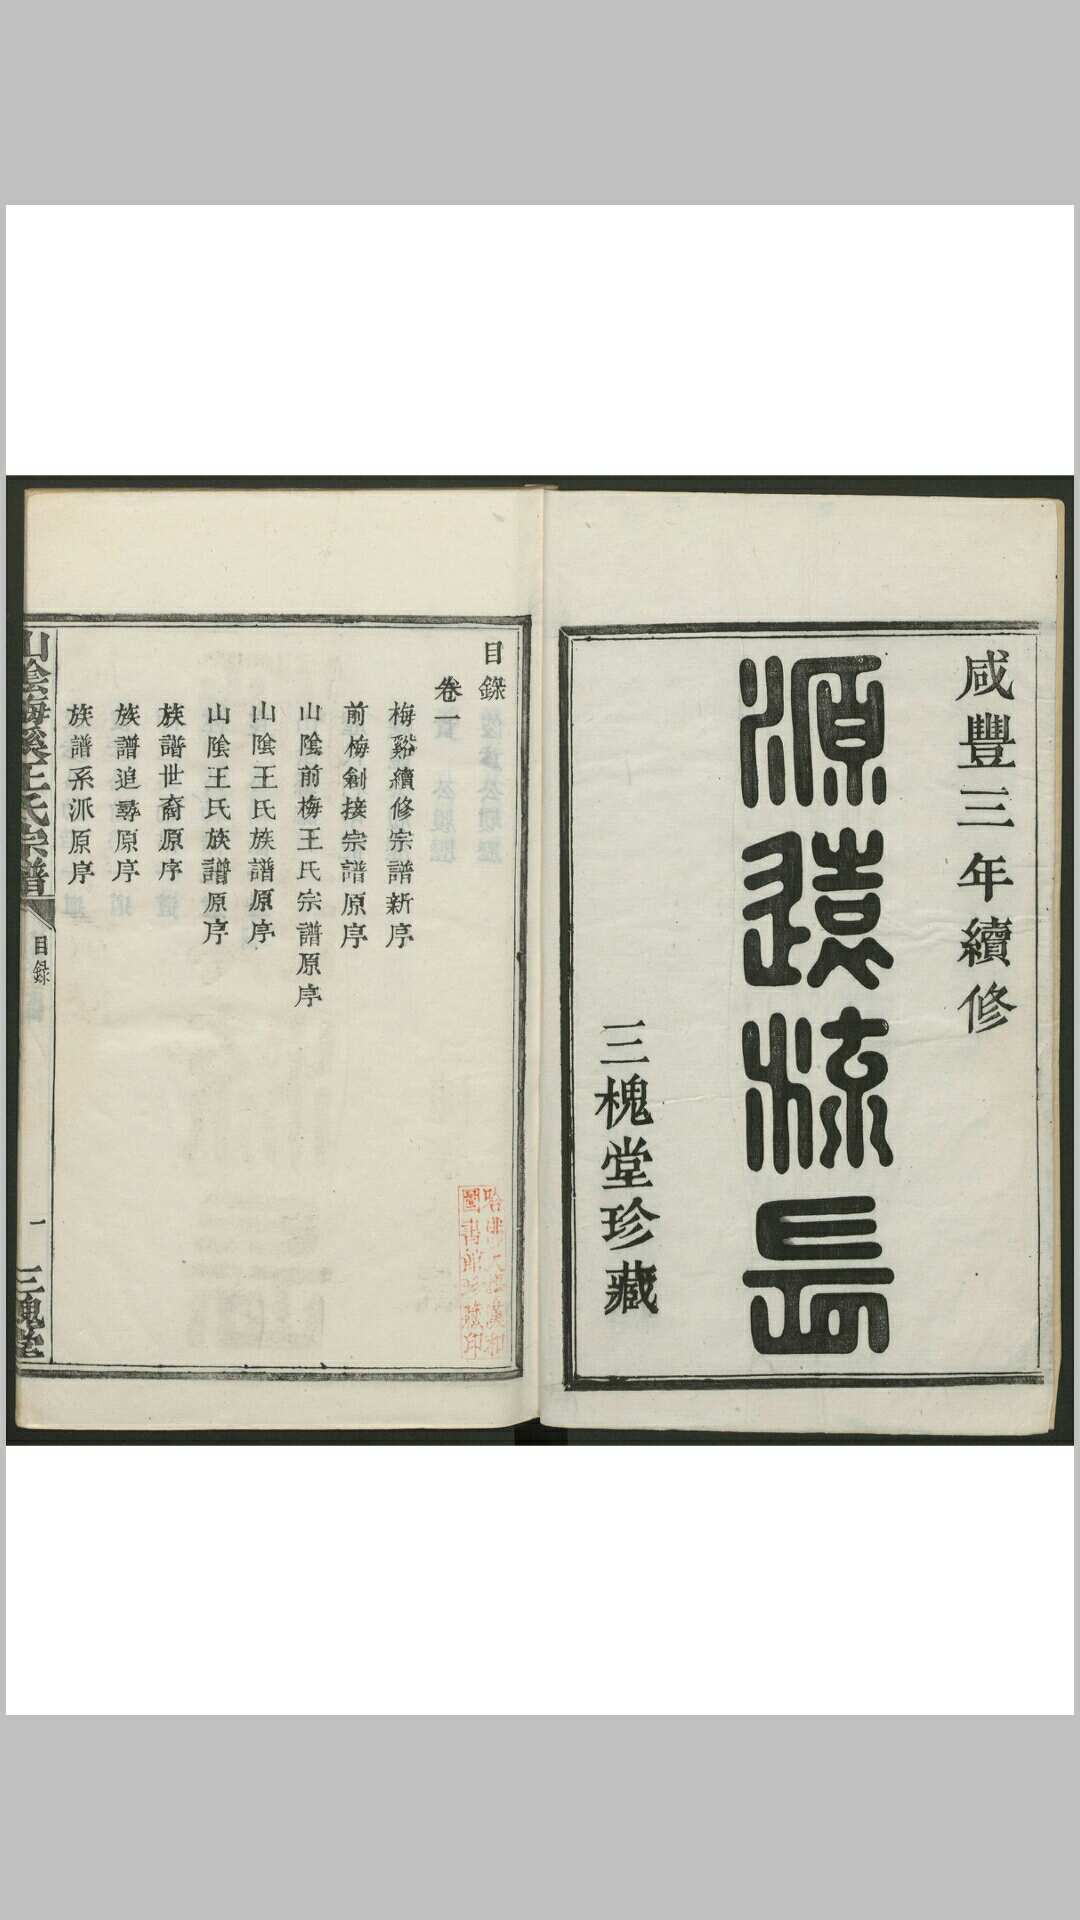 咸豐三年續修
源遠流長
三槐堂珍藏
目錄
卷一
梅谿續修宗譜新序
前梅創接宗譜原序
山陰前梅王氏宗譜原序
山陰王氏族譜原序
山陰王氏族譜原序
族譜世裔原序
族譜追尋原序
族譜系派原序
山陰梅溪王氏宗譜
目錄
一
三槐堂
哈佛大學漢和
圖書館珍藏印